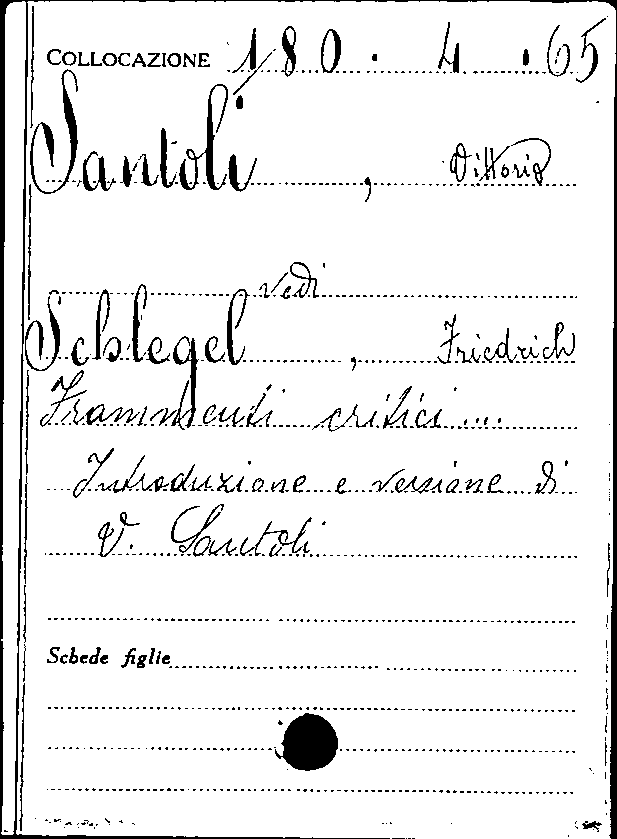 COLLOCAZIONE 180 . 4 . 65
Santoli , Vittorio
vedi
Schlegel , Friedrich
Frammenti critici ....
Introduzione e versione di
V. Santoli
Schede figlie